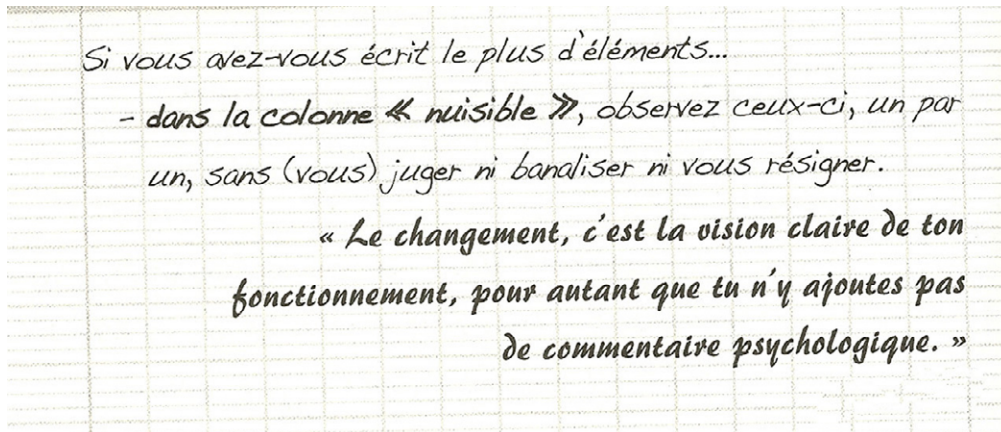 Si vous avez-vous écrit le plus d'éléments...
- dans la colonne « nuisible », observez ceux-ci, un par
un, sans (vous) juger ni banaliser ni vous résigner.
« Le changement, c'est la vision claire de ton
fonctionnement, pour autant que tu n'y ajoutes pas
de commentaire psychologique. »